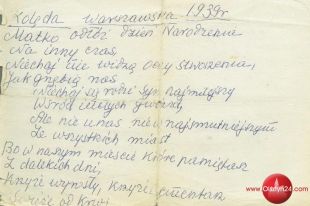 Kolęda warszawska 1939r.
Matko odłóż dzień Narodzenia
Na inny czas,
Niechaj nie widzą oczy stworzenia,
Jak gnębią nas.
Niechaj się rodzi syn najmilszy
Wśród innych gwiazd,
Ale nie u nas, nie w najsmutniejszym
Ze wszystkich miast
Bo w naszym mieście które pamiętasz
Z dalekich dni,
Krzyże wyrosły, krzyże i cmentarz
Świeże od krwi
Olsztyn24.com